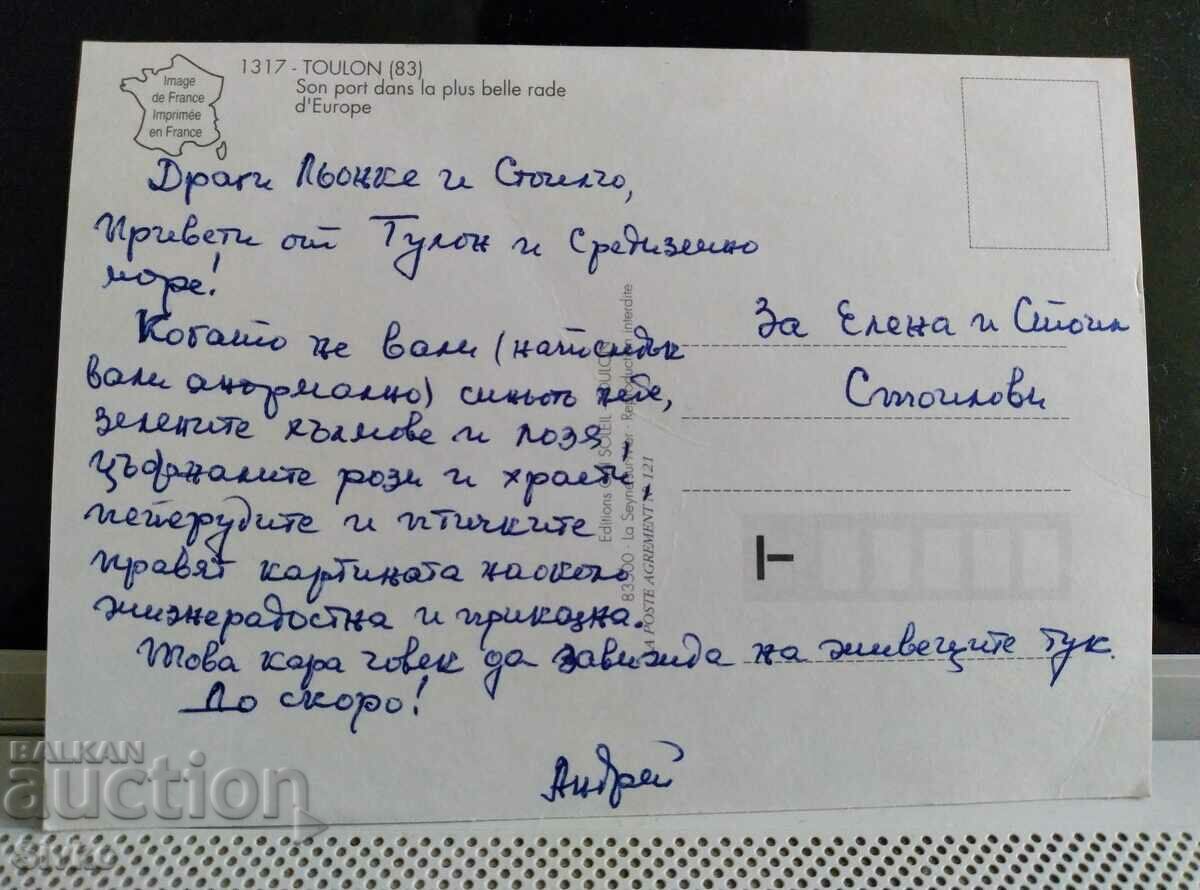 Image
de France
Imprimée
en France
1317 - TOULON (83)
Son port dans la plus belle rade
d'Europe
Драги Льонке и Стоилчо,
Привети от Тулон и Средиземно
море!
Когато не вали (напоследък
вали анормално) синьото небе,
зелените хълмове и лозя,
цъфналите рози и храсти,
пеперудите и птичките
правят картината наоколо
жизнерадостна и приказна.
Това кара човек да завижда на живеещите тук.
До скоро!
Андрей
За Елена и Стоил
Стоилови
Editions SOLEIL
83500 - La Seyne sur Mer - Reproduction interdite
LA POSTE AGREMENT N° 121
BALKAN
auction
Sivko